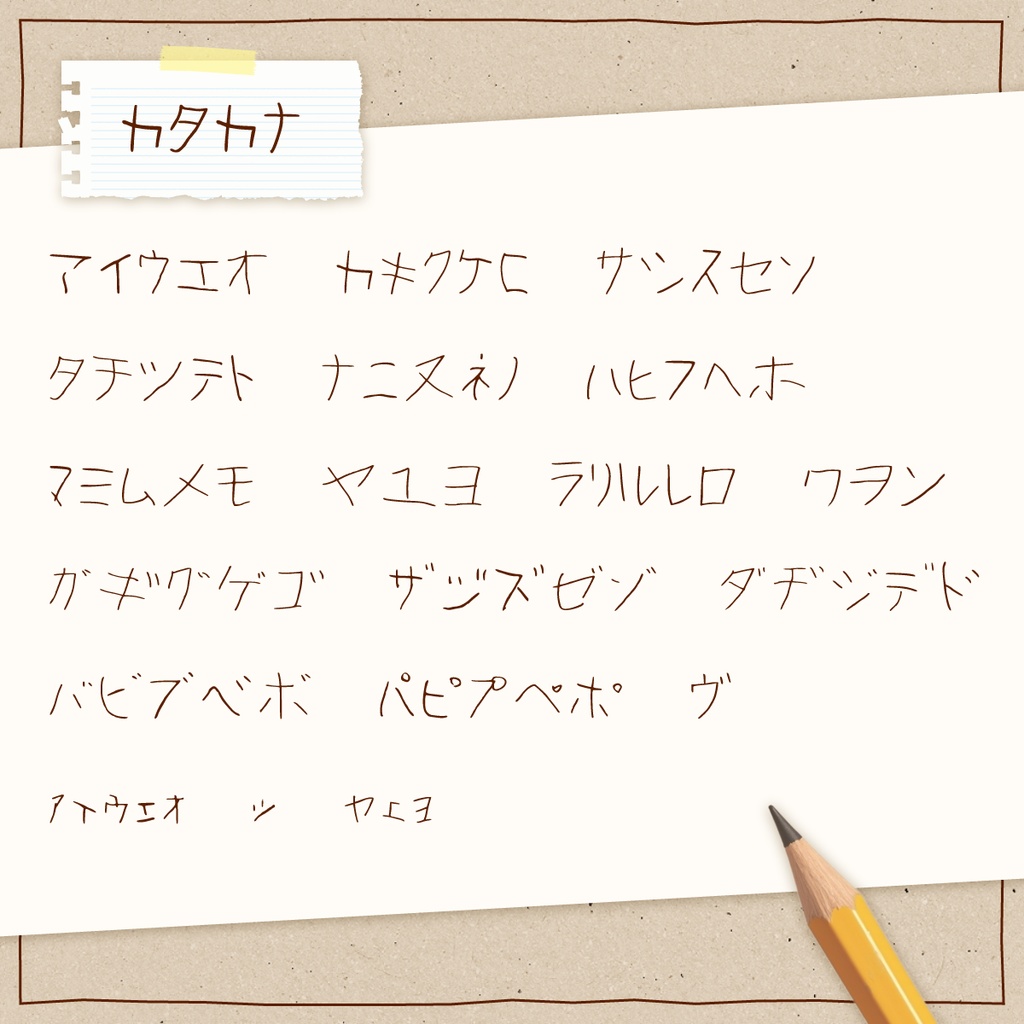 カタカナ
アイウエオ カキクケコ サシスセソ
タチツテト ナニヌネノ ハヒフヘホ
マミムメモ ヤユヨ ラリルレロ ワヲン
ガギグゲゴ ザジズゼゾ ダヂヅデド
バビブベボ パピプペポ ヴ
ァィゥェォ ッ ャュョ